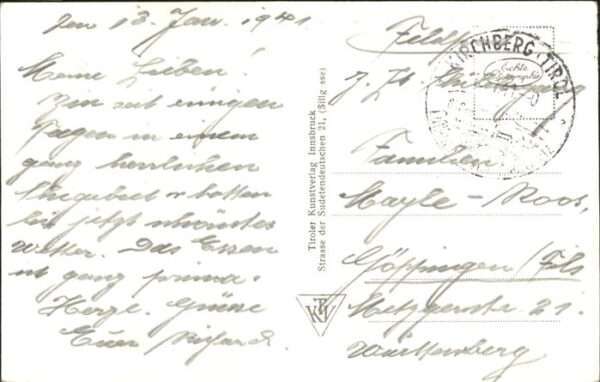 den 13. Jan. 1941
Meine Lieben!
Bin seit einigen
Tagen in einem
ganz herrlichen
Skigebiet u. hatten
bis jetzt schönstes
Wetter. Das Essen
ist ganz prima.
Herzl. Grüsse
Euer Richard.
Tiroler Kunstverlag Innsbruck
Strasse der Sudetendeutschen 21, (Sillgasse)
TKV
Feldpost
KIRCHBERG (TIROL)
Echte
Photographie
z. Zt.
Familien
Mayle-Roos,
Göppingen/Fils
Metzgerstr. 21.
Württemberg